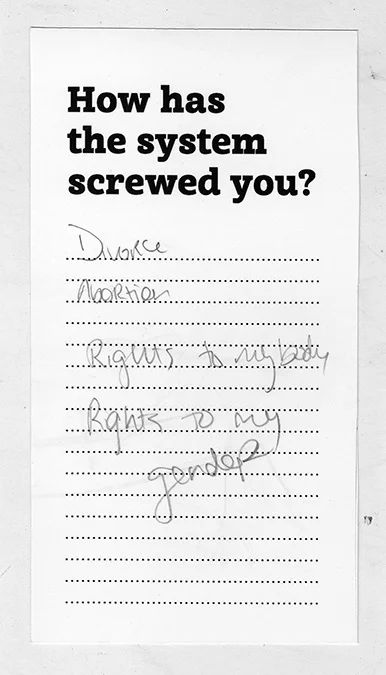 How has
the system
screwed you?
Divorce
Abortion
Rights to my body
Rghts to my
gender